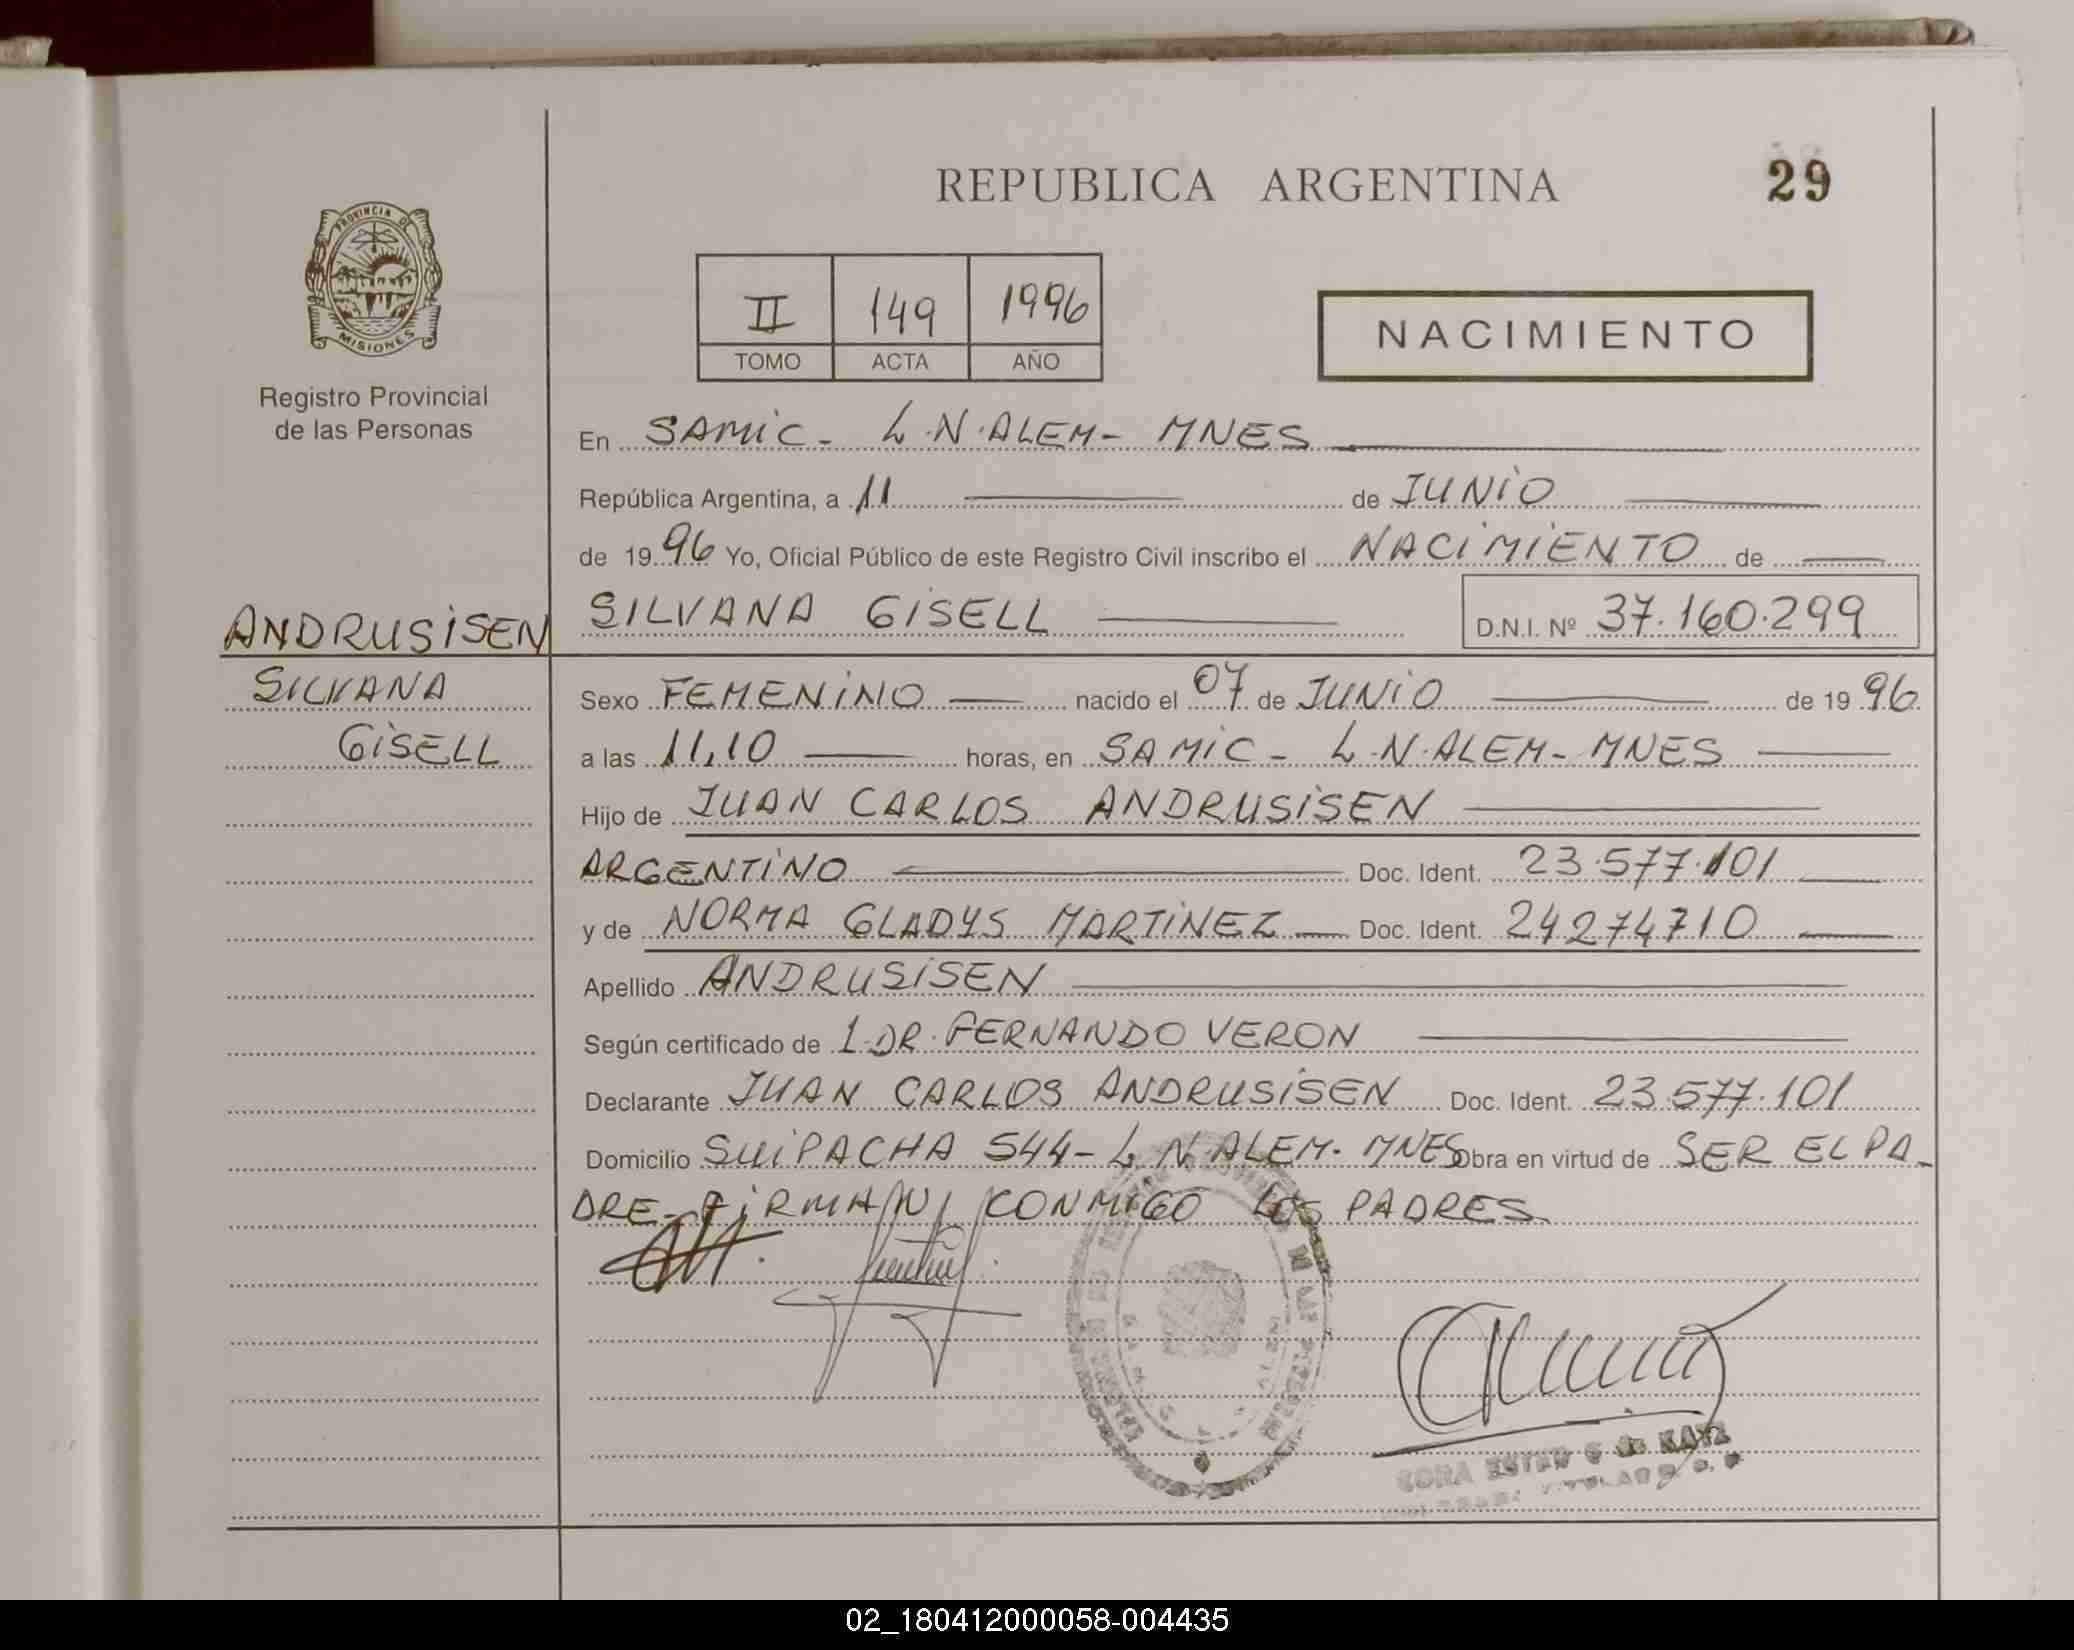 REPUBLICA ARGENTINA
29
PROVINCIA DE
MISIONES
Registro Provincial
de las Personas
II 149 1996
TOMO ACTA AÑO
NACIMIENTO
En SAMIC - L.N.ALEM - MNES
República Argentina, a 11 de JUNIO
de 1996 Yo, Oficial Público de este Registro Civil inscribo el NACIMIENTO de
SILVANA GISELL
D.N.I. Nº 37.160.299
ANDRUSISEN
SILVANA
GISELL
Sexo FEMENINO nacido el 07 de JUNIO de 1996
a las 11,10 horas, en SAMIC - L.N.ALEM - MNES
Hijo de JUAN CARLOS ANDRUSISEN
ARGENTINO Doc. Ident. 23.577.101
y de NORMA GLADYS MARTINEZ Doc. Ident. 24274710
Apellido ANDRUSISEN
Según certificado de 1-DR. FERNANDO VERON
Declarante JUAN CARLOS ANDRUSISEN Doc. Ident. 23.577.101
Domicilio SUIPACHA 544 - L.N.ALEM. MNES Obra en virtud de SER EL PA-
DRE - FIRMAN CONMIGO LOS PADRES
KATZ
02_180412000058-004435